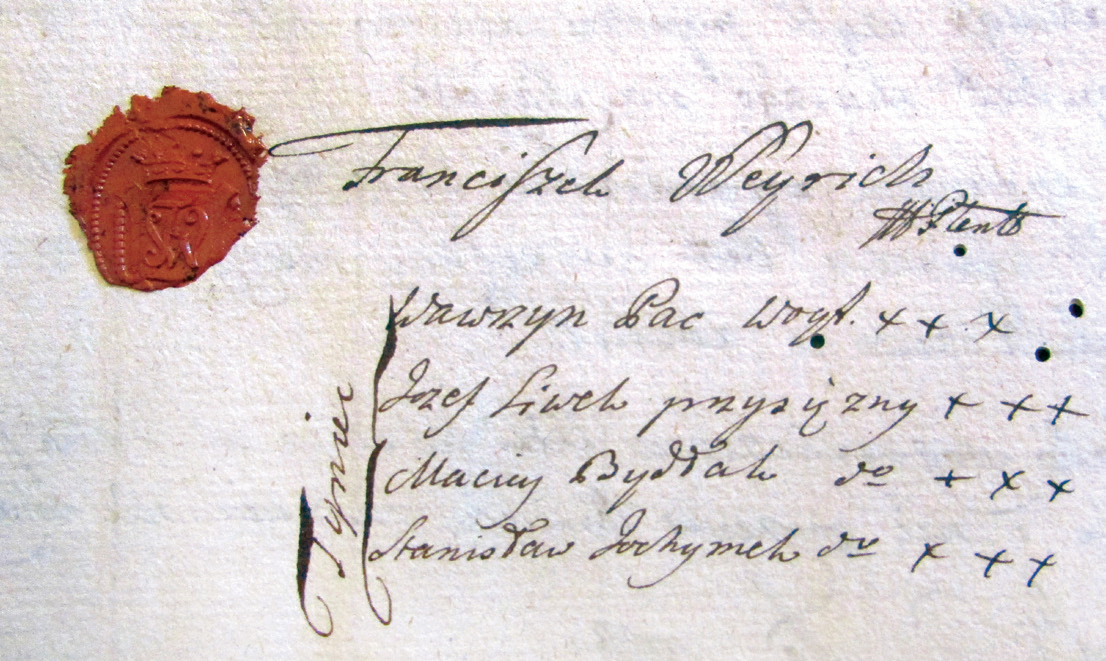 Franciszek Weyrich
Tyniec
Wawrzyn Pac Woyt. x x x
Jozef Siwek przysiężny x x x
Maciey Bydłak do + x x
Stanisław Jochymek do x x x